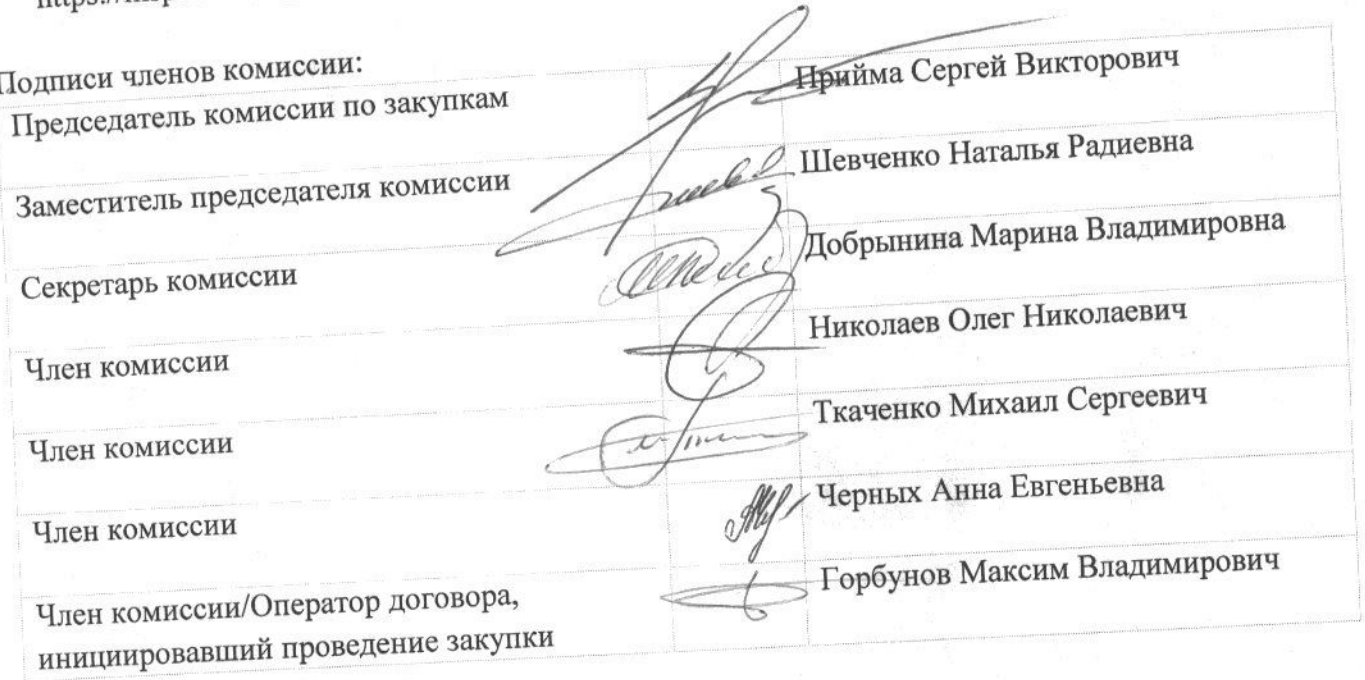 Подписи членов комиссии:
Председатель комиссии по закупкам Прийма Сергей Викторович
Заместитель председателя комиссии Шевченко Наталья Радиевна
Секретарь комиссии Добрынина Марина Владимировна
Член комиссии Николаев Олег Николаевич
Член комиссии Ткаченко Михаил Сергеевич
Член комиссии Черных Анна Евгеньевна
Член комиссии/Оператор договора, Горбунов Максим Владимирович
инициировавший проведение закупки